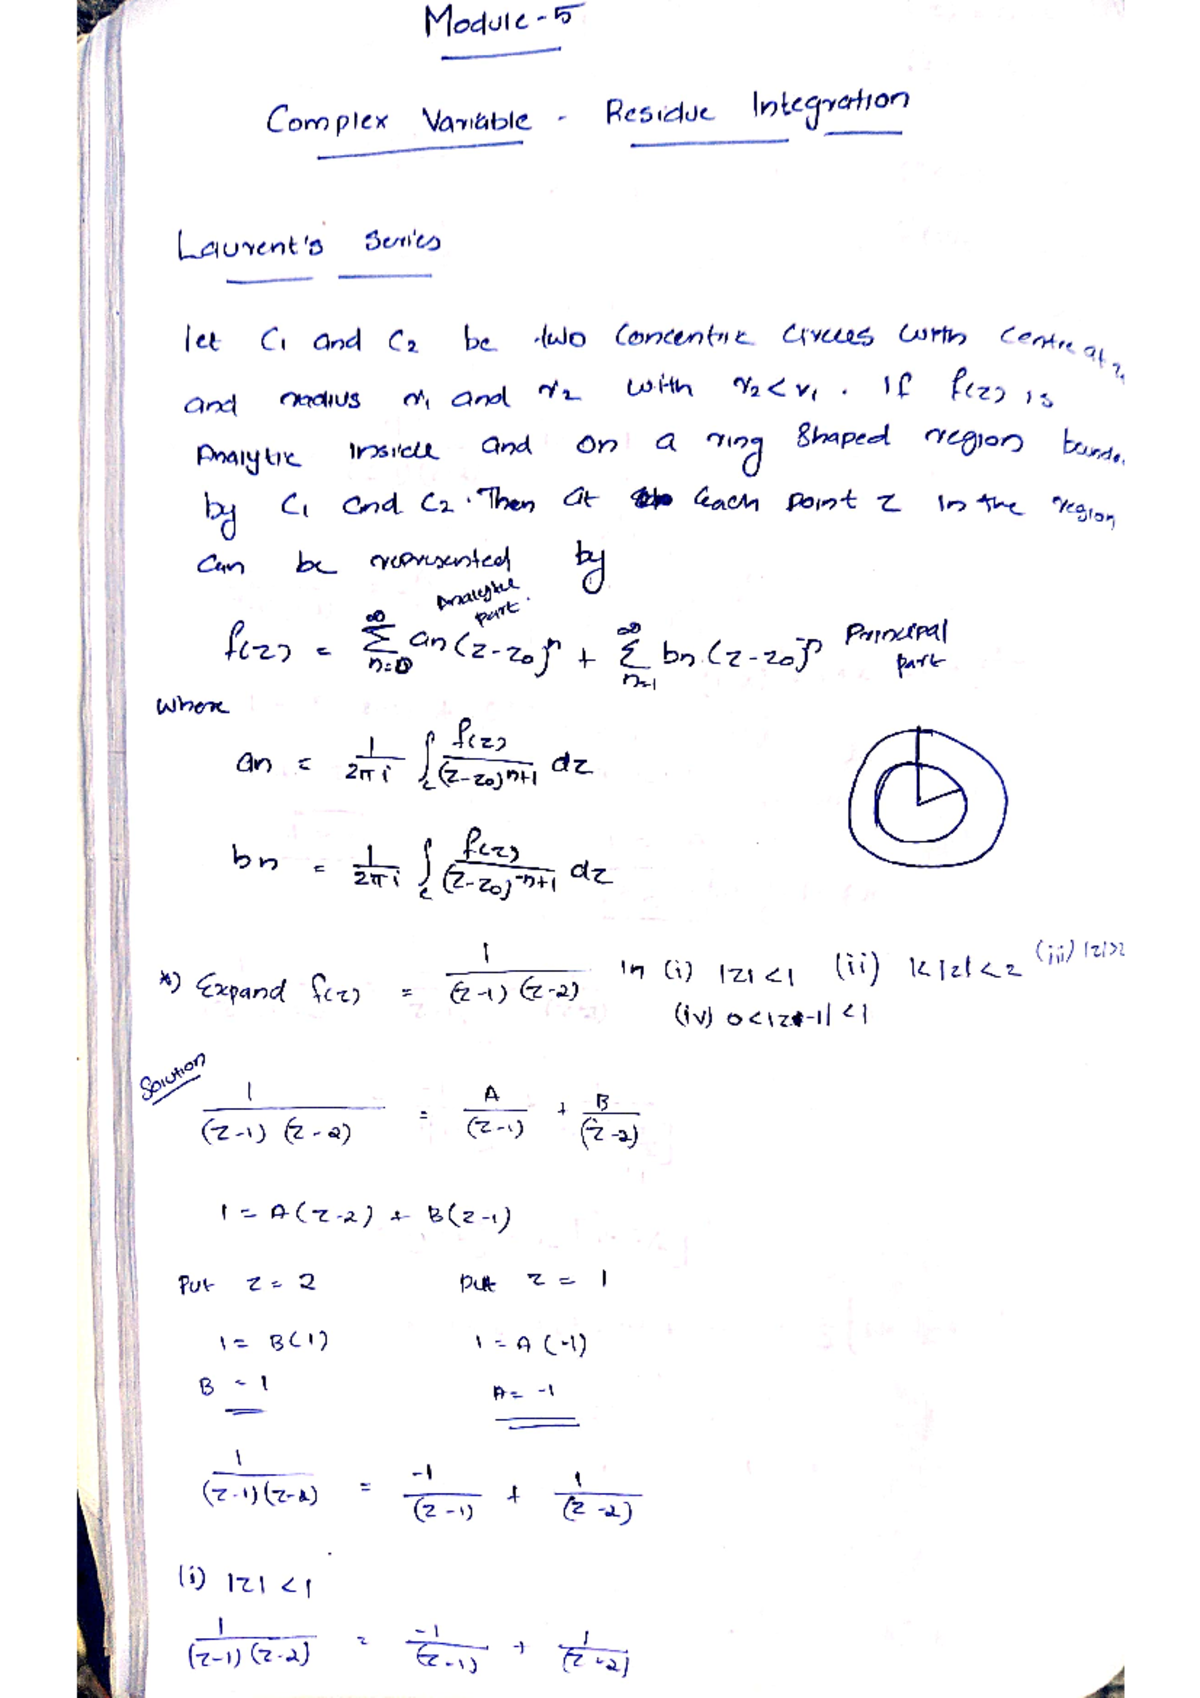 Module - 5
Complex Variable - Residue Integration
Laurent's Series
let C₁ and C₂ be two Concentric Circles with centre at
and radius r₁ and r₂ with r₂ < r₁ . If f(z) is
Analytic inside and on a ring shaped region
by C₁ and C₂. Then at each point z in the region
can be represented by
Analytic part.
f(z) = ∑_{n=0}^{∞} an (z-z₀)^n + ∑_{n=1}^{∞} bn (z-z₀)^{-n} Principal part
where
an = 1/2πi ∫_c f(z)/(z-z₀)^{n+1} dz
bn = 1/2πi ∫_c f(z)/(z-z₀)^{-n+1} dz
*) Expand f(z) = 1/(z-1)(z-2) in (i) |z|<1 (ii) 1<|z|<2 (iii) |z|>2
(iv) 0<|z-1|<1
Solution
1/(z-1)(z-2) = A/(z-1) + B/(z-2)
1 = A(z-2) + B(z-1)
Put z = 2 put z = 1
1 = B(1) 1 = A(-1)
B = 1 A = -1
1/(z-1)(z-2) = -1/(z-1) + 1/(z-2)
(i) |z| < 1
1/(z-1)(z-2) = -1/(z-1) + 1/(z-2)